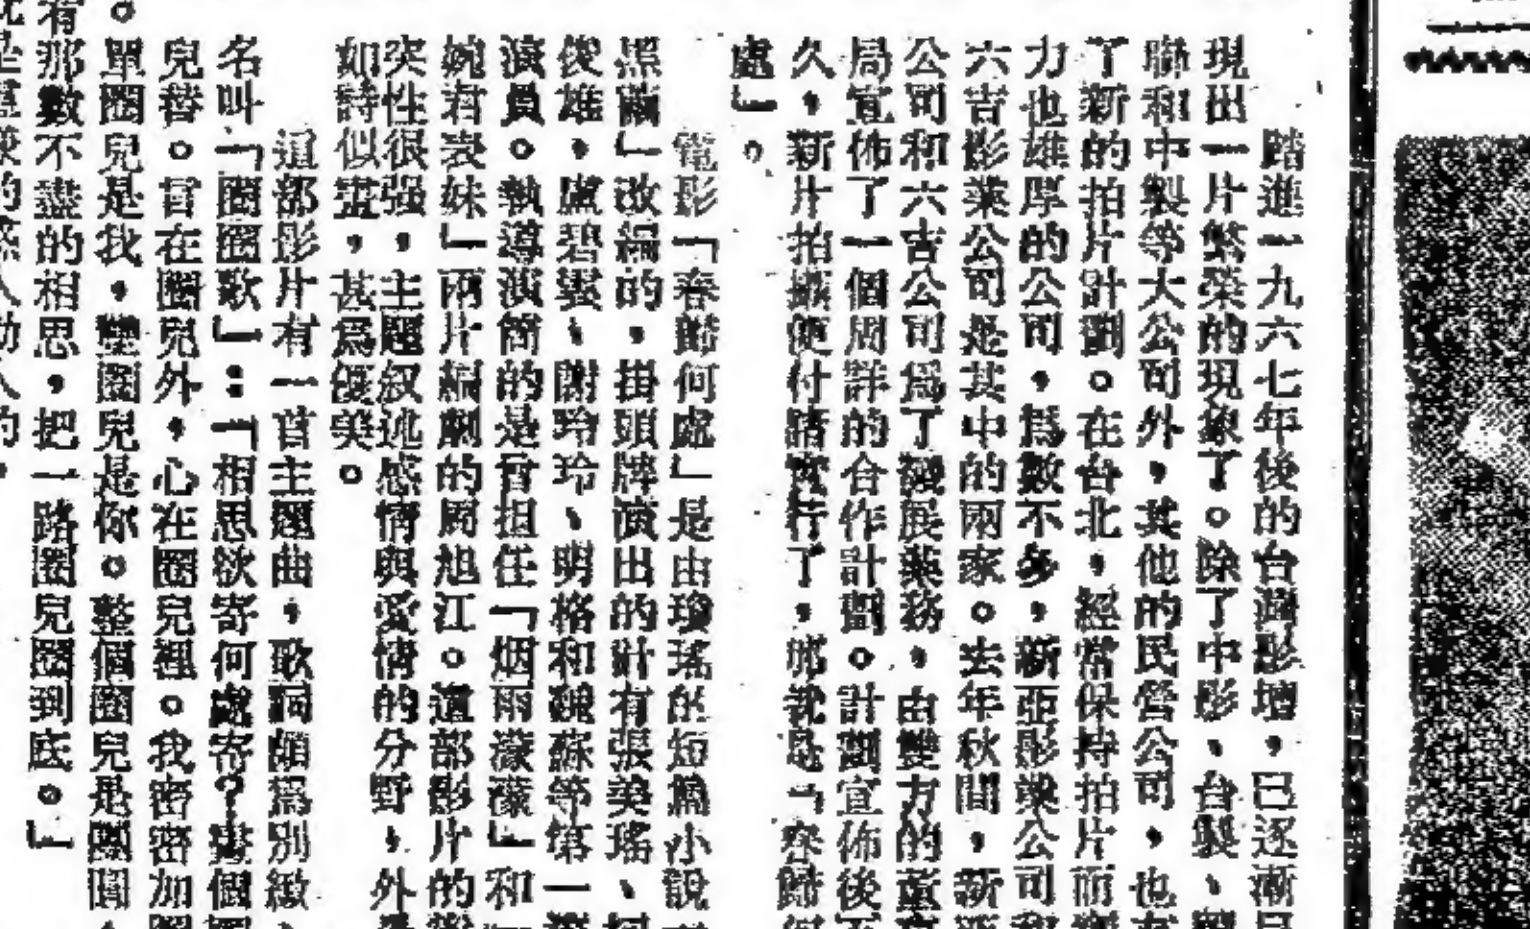 踏進一九六七年後的台灣影壇，已逐漸呈
現出一片繁榮的現象了。除了中影、台製、
聯和中製等大公司外，其他的民營公司，也有
了新的拍片計劃。在台北，經常保持拍片而
力也雄厚的公司，爲數不多，新亞影業公司和
六吉影業公司是其中的兩家。去年秋間，新亞
公司和六吉公司爲了發展業務，由雙方的董事
局宣佈了一個周詳的合作計劃。計劃宣佈後不
久，新片拍攝便付諸實行了，那就是「春歸何
處」。
電影「春歸何處」是由瓊瑤的短篇小說
黑繭」改編的，掛頭牌演出的計有張美瑤、柯
俊雄，盧碧雲、謝玲玲、明格和魏蘇等第一
演員。執導演筒的是曾担任「烟雨濛濛」和
婉君表妹」兩片編劇的周旭江。這部影片的
突性很强，主題叙述感情與愛情的分野，外
如詩似畫，甚爲優美。
這部影片有一首主題曲，歌詞頗爲別緻，
名叫「圈圈歌」：「相思欲寄何處寄？畫個圈
兒替。言在圈兒外，心在圈兒裡。我密密加圈
。單圈兒是我，雙圈兒是你。整個圈兒是團圓，
有那數不盡的相思，把一路圈兒圈到底。」
的